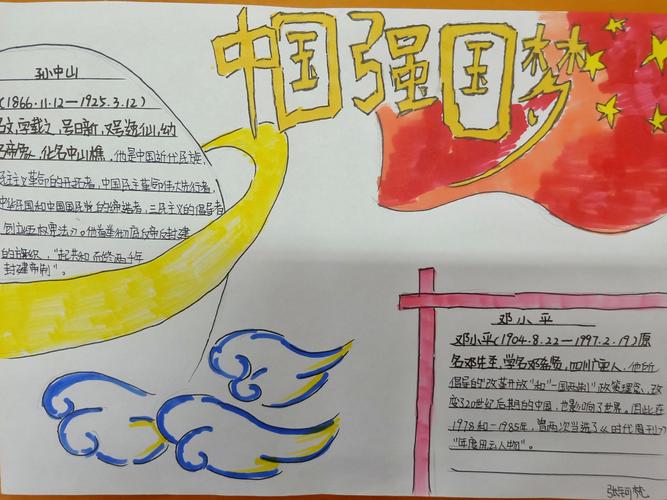 中国强国梦
孙中山
(1866.11.12—1925.3.12)
名文,字载之,号日新,又号逸仙,幼
名帝象,化名中山樵,他是中国近代民族
民主主义革命的开拓者,中国民主革命伟大先行者,
中华民国和中国国民党的缔造者,三民主义的倡导者
创立《五权宪法》。他首举彻底反帝反封建
的旗帜,"起共和而终两千年
封建帝制"。
邓小平
邓小平(1904.8.22—1997.2.19)原
名邓先圣,学名邓希贤,四川广安人,他所
倡导的"改革开放"和"一国两制"政策理念,改
变了20世纪后期的中国,也影响了世界。因此在
1978和一1985年,曾两次当选了《时代周刊》
"年度风云人物"。
张